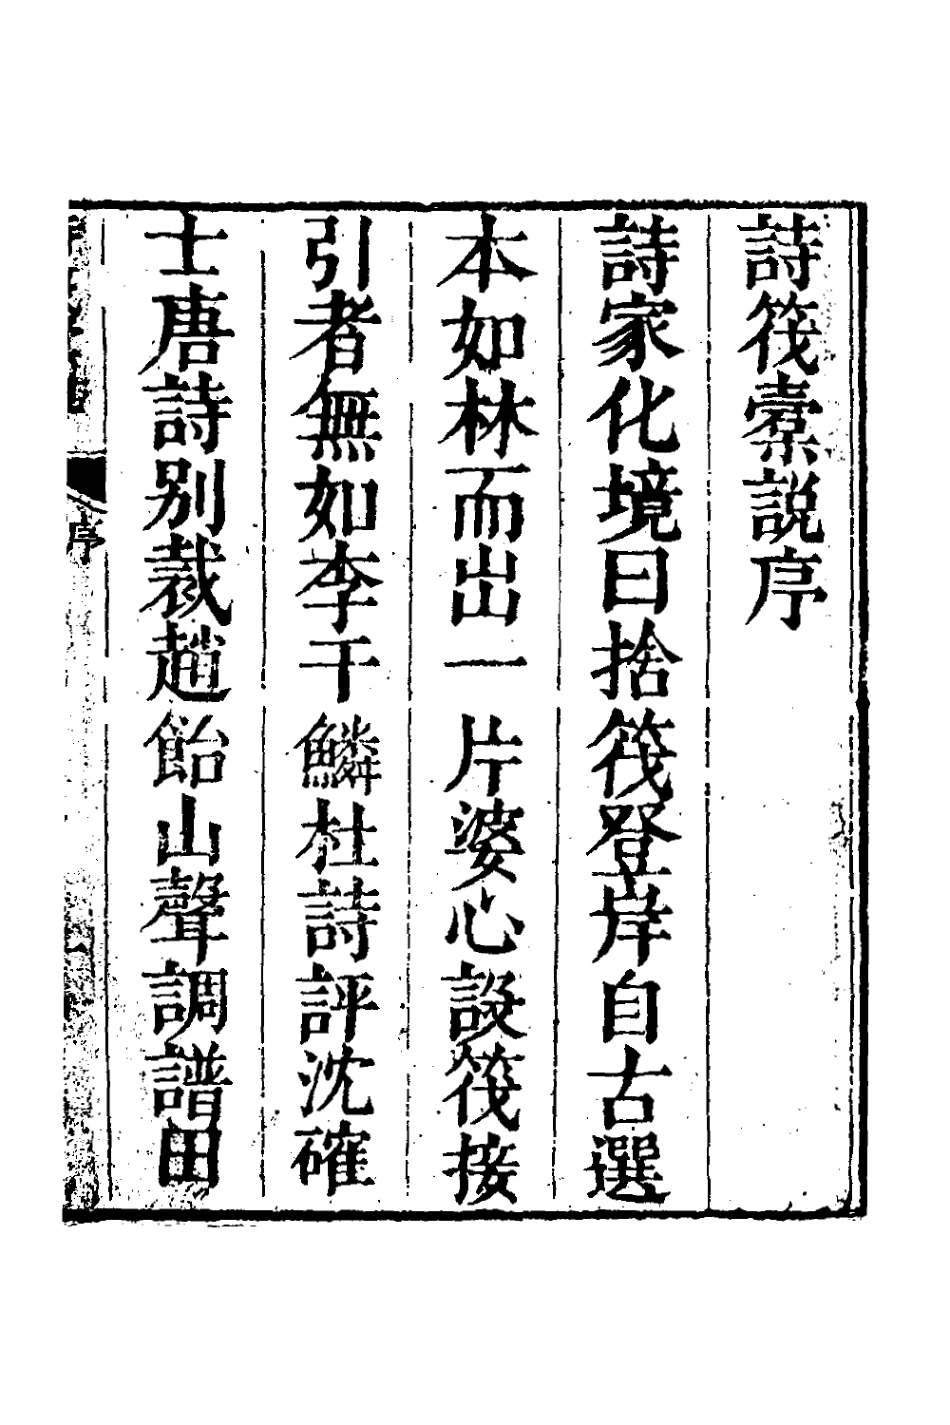 詩筏橐説序
詩家化境曰捨筏登岸自古選
本如林而出一片婆心設筏接
引者無如李于鱗杜詩評沈確
士唐詩別裁趙飴山聲調譜田
序